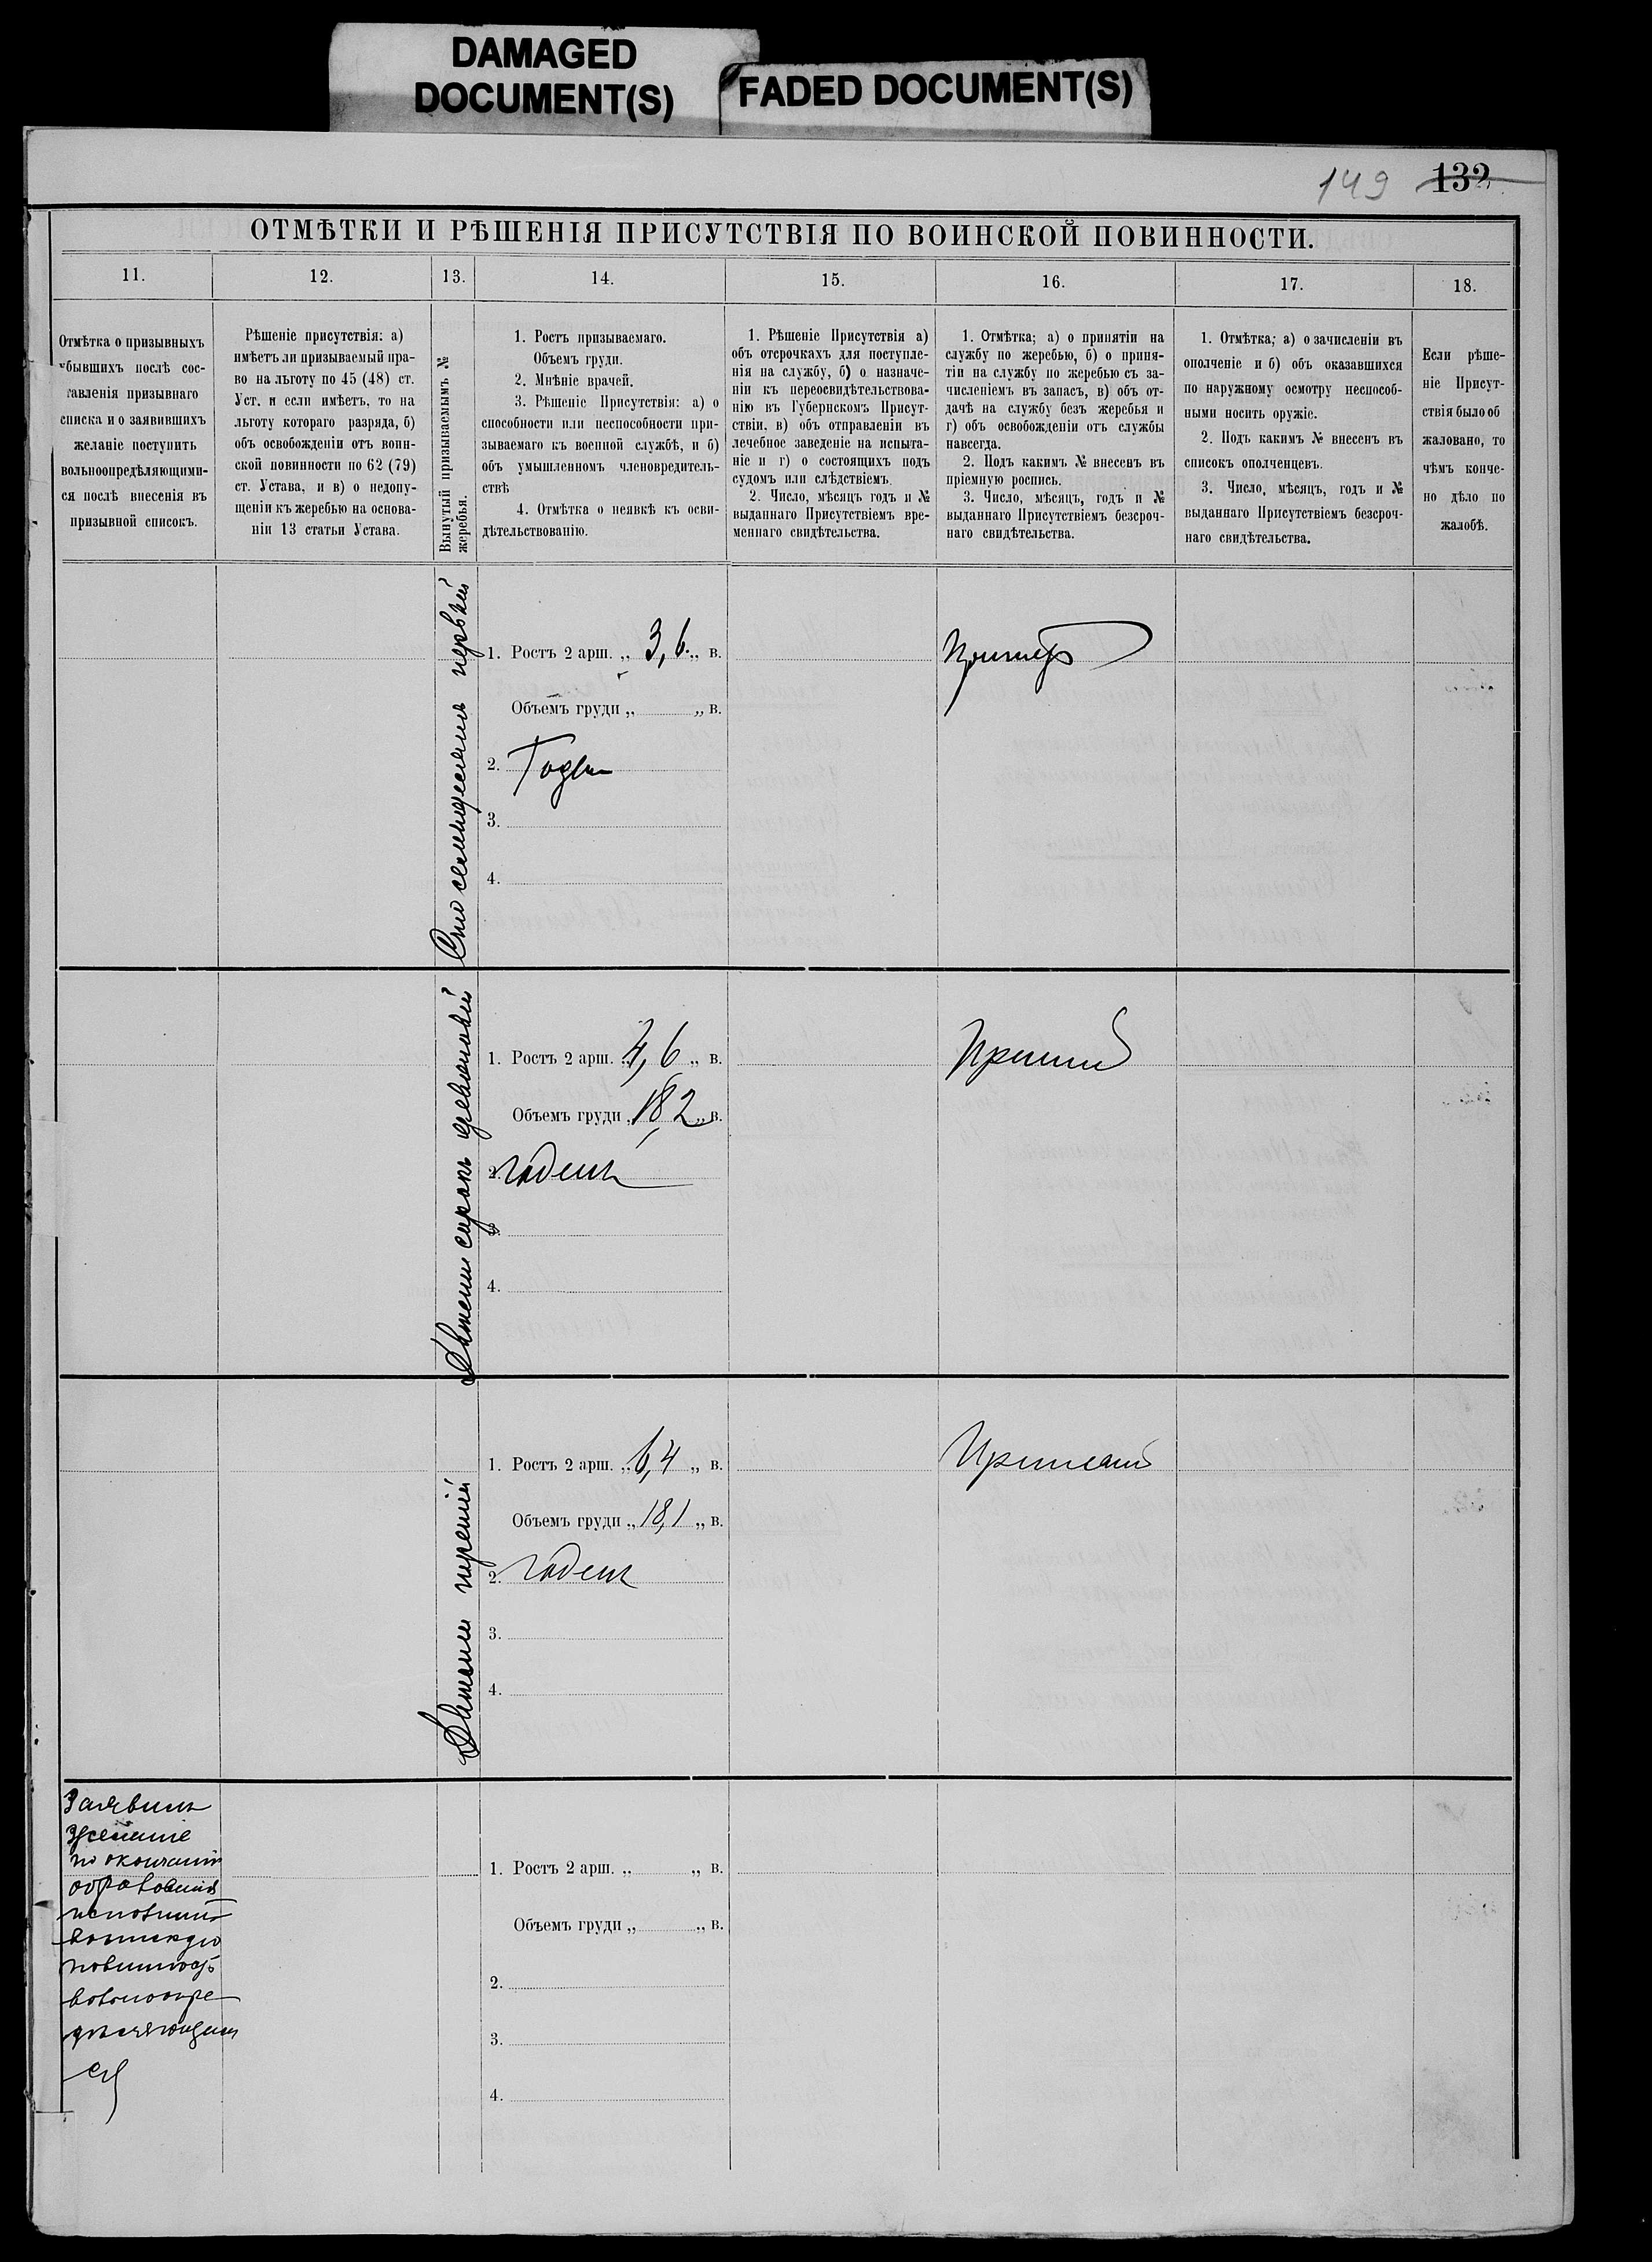 DAMAGED
DOCUMENT(S)
FADED DOCUMENT(S)
149 132
ОТМѢТКИ И РѢШЕНІЯ ПРИСУТСТВІЯ ПО ВОИНСКОЙ ПОВИННОСТИ.
11.
12.
13.
14.
15.
16.
17.
18.
Отмѣтка о призывныхъ
убывшихъ послѣ сос-
тавленія призывнаго
списка и о заявившихъ
желаніе поступить
вольноопредѣляющими-
ся послѣ внесенія въ
призывной списокъ.
Рѣшеніе присутствія: а)
имѣетъ ли призываемый пра-
во на льготу по 45 (48) ст.
Уст. и если имѣетъ, то на
льготу котораго разряда, б)
объ освобожденіи отъ воин-
ской повинности по 62 (79)
ст. Устава, и в) о недопу-
щеніи къ жеребью на основа-
ніи 13 статьи Устава.
Вынутый призываемымъ №
жеребья.
1. Ростъ призываемаго.
Объемъ груди.
2. Мнѣніе врачей.
3. Рѣшеніе Присутствія: а) о
способности или неспособности при-
зываемаго къ военной службѣ, и б)
объ умышленномъ членовредитель-
ствѣ
4. Отмѣтка о неявкѣ къ осви-
дѣтельствованію.
1. Рѣшеніе Присутствія а)
объ отсрочкахъ для поступле-
нія на службу, б) о назначе-
ніи къ переосвидѣтельствова-
нію въ Губернскомъ Присут-
ствіи, в) объ отправленіи въ
лечебное заведеніе на испыта-
ніе и г) о состоящихъ подъ
судомъ или слѣдствіемъ.
2. Число, мѣсяцъ годъ и №
выданнаго Присутствіемъ вре-
меннаго свидѣтельства.
1. Отмѣтка; а) о принятіи на
службу по жеребью, б) о приня-
тіи на службу по жеребью съ за-
численіемъ въ запасъ, в) объ от-
дачѣ на службу безъ жеребья и
г) объ освобожденіи отъ службы
навсегда.
2. Подъ какимъ № внесенъ въ
пріемную роспись.
3. Число, мѣсяцъ, годъ и №
выданнаго Присутствіемъ безсроч-
наго свидѣтельства.
1. Отмѣтка; а) о зачисленіи въ
ополченіе и б) объ оказавшихся
по наружному осмотру неспособ-
ными носить оружіе.
2. Подъ какимъ № внесенъ въ
списокъ ополченцевъ.
3. Число, мѣсяцъ, годъ и №
выданнаго Присутствіемъ безсроч-
наго свидѣтельства.
Если рѣше-
ніе Присут-
ствія было об
жаловано, то
чѣмъ конче-
но дѣло по
жалобѣ.
Сто семьдесятъ первый
1. Ростъ 2 арш. „ 3,6 „ в.
Объемъ груди „ „ в.
2. Годенъ
3.
4.
Принятъ
Двѣсти сорокъ девятый
1. Ростъ 2 арш. „ 4,6 „ в.
Объемъ груди „ 18,2 „ в.
2. годенъ
3.
4.
Принятъ
Двѣсти третій
1. Ростъ 2 арш. „ 6,4 „ в.
Объемъ груди „ 18,1 „ в.
2. годенъ
3.
4.
Принятъ
Заявилъ
желаніе
по окончаніи
образованія
исполнить
воинскую
повинность
вольноопре
дѣляющим
ся
1. Ростъ 2 арш. „ „ в.
Объемъ груди „ „ в.
2.
3.
4.